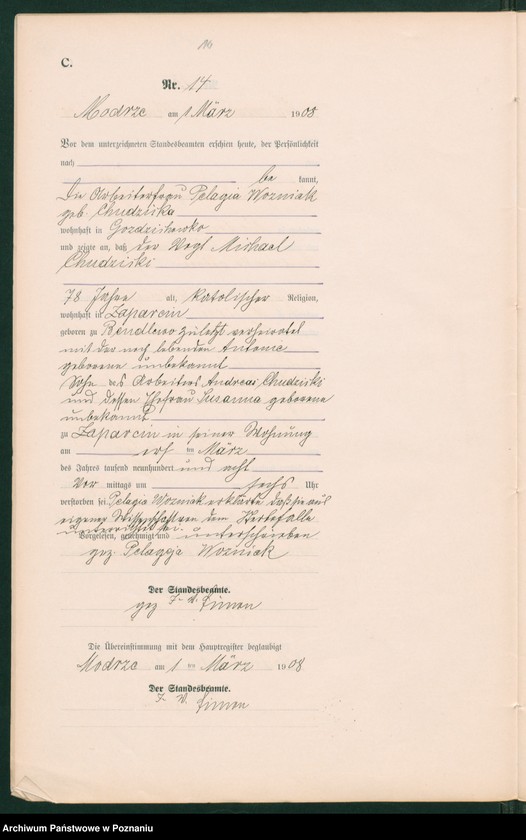 C.
Nr. 14
Modrze am 1 März 1908
Vor dem unterzeichneten Standesbeamten erschien heute, der Persönlichkeit
nach
be kannt,
Die Arbeiterfrau Pelagia Wozniak
geb. Chudziska
wohnhaft in
und zeigte an, daß der Vogt Michael
Chudziski
78 Jahre alt, katolischer Religion,
wohnhaft in Zaparcin
geboren zu Bendlewo zuletzt verheiratet
mit der noch lebenden Antonie
geborene unbekannt
Sohn des Arbeiters Andreas Chudziski
und dessen Ehefrau Susanna geborene
unbekannt
zu Zaparcin in seiner Wohnung
am ten März
des Jahres tausend neunhundert und acht
Vor mittags um sechs Uhr
verstorben sei. Pelagia Wozniak erklärte daß sie aus
eigener Wissenschaft von dem Sterbefalle
unterrichtet sei.
Vorgelesen, genehmigt und unterschrieben
gez. Pelagja Wozniak
Der Standesbeamte.
gez J. V.
Die Übereinstimmung mit dem Hauptregister beglaubigt
Modrze am 1 ten März 1908
Der Standesbeamte.
J. V.
Archiwum Państwowe w Poznaniu